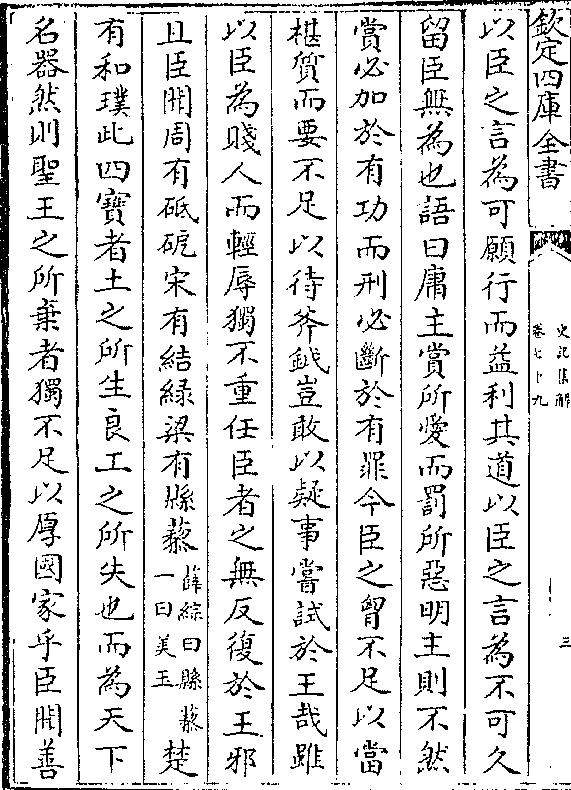 欽定四庫全書
史記集解
卷七十九
三
以臣之言為可願行而益利其道以臣之言為不可久
留臣無為也語曰庸主賞所愛而罰所惡明主則不然
賞必加於有功而刑必斷於有罪今臣之胷不足以當
椹質而要不足以待斧鉞豈敢以疑事嘗試於王哉雖
以臣為賤人而輕辱獨不重任臣者之無反復於王邪
且臣聞周有砥砨宋有結緑梁有縣藜薛綜曰縣藜一曰美玉楚
有和璞此四寶者土之所生良工之所失也而為天下
名器然則聖王之所棄者獨不足以厚國家乎臣聞善